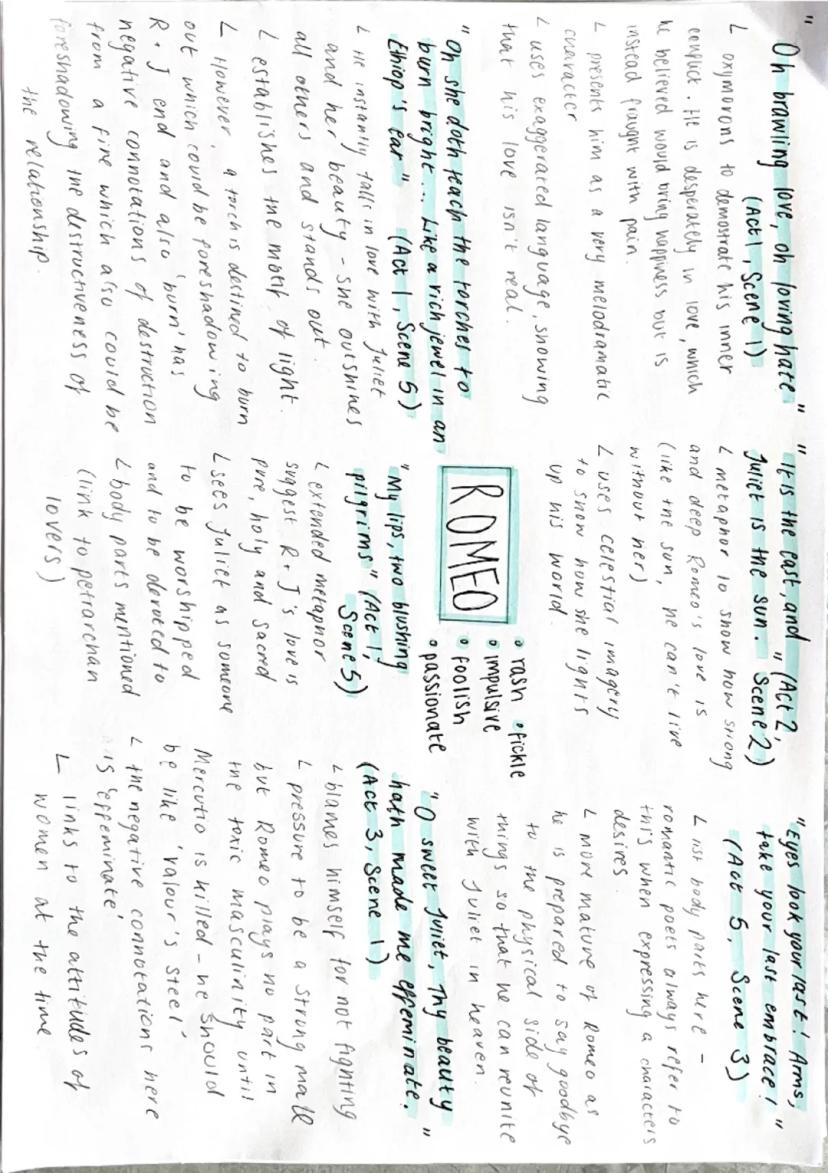 "Oh brawling love, oh loving hate"
(Act 1, Scene 1)
L oxymorons to demostrate his inner
conflict. He is desperately in love, which
he believed would bring happiness but is
instead fraught with pain.
L presents him as a very melodramatic
character
L uses exaggerated language, showing
that his love isn't real.
"Oh she doth teach the torches to
burn bright... Like a rich jewel in an
Ethiop's ear" (Act 1, Scene 5)
L He instantly falls in love with Juliet
and her beauty - she outshines
all others and stands out.
L establishes the motif of light.
L However, a torch is destined to burn
out which could be foreshadowing
R + J end and also 'burn' has
negative connotations of destruction
from a fire which also could be
foreshadowing the destructiveness of
the relationship.
"It is the east, and
Juliet is the sun." (Act 2,
Scene 2)
L metaphor to show how strong
and deep Romeo's love is
(like the sun, he can't live
without her)
L uses celestial imagery
to show how she lights
up his world.
ROMEO
• rash • fickle
• impulsive
• foolish
• passionate
"My lips, two blushing
pilgrims" (Act 1,
Scene 5)
L extended metaphor
suggest R + J's love is
pure, holy and sacred
L sees Juliet as someone
to be worshipped
and to be devoted to
L body parts mentioned
(link to petrarchan
lovers)
"Eyes look your last! Arms,
take your last embrace!"
(Act 5, Scene 3)
L list body parts here -
romantic poets always refer to
this when expressing a characters
desires.
L more mature of Romeo as
he is prepared to say goodbye
to the physical side of
things so that he can reunite
with Juliet in heaven.
"O sweet Juliet, Thy beauty
hath made me effeminate."
(Act 3, Scene 1)
L blames himself for not fighting
L pressure to be a strong male
but Romeo plays no part in
the toxic masculinity until
Mercutio is killed - he should
be like 'valour's steel'
L the negative connotations here
is 'effeminate'
L links to the attitudes of
women at the time.